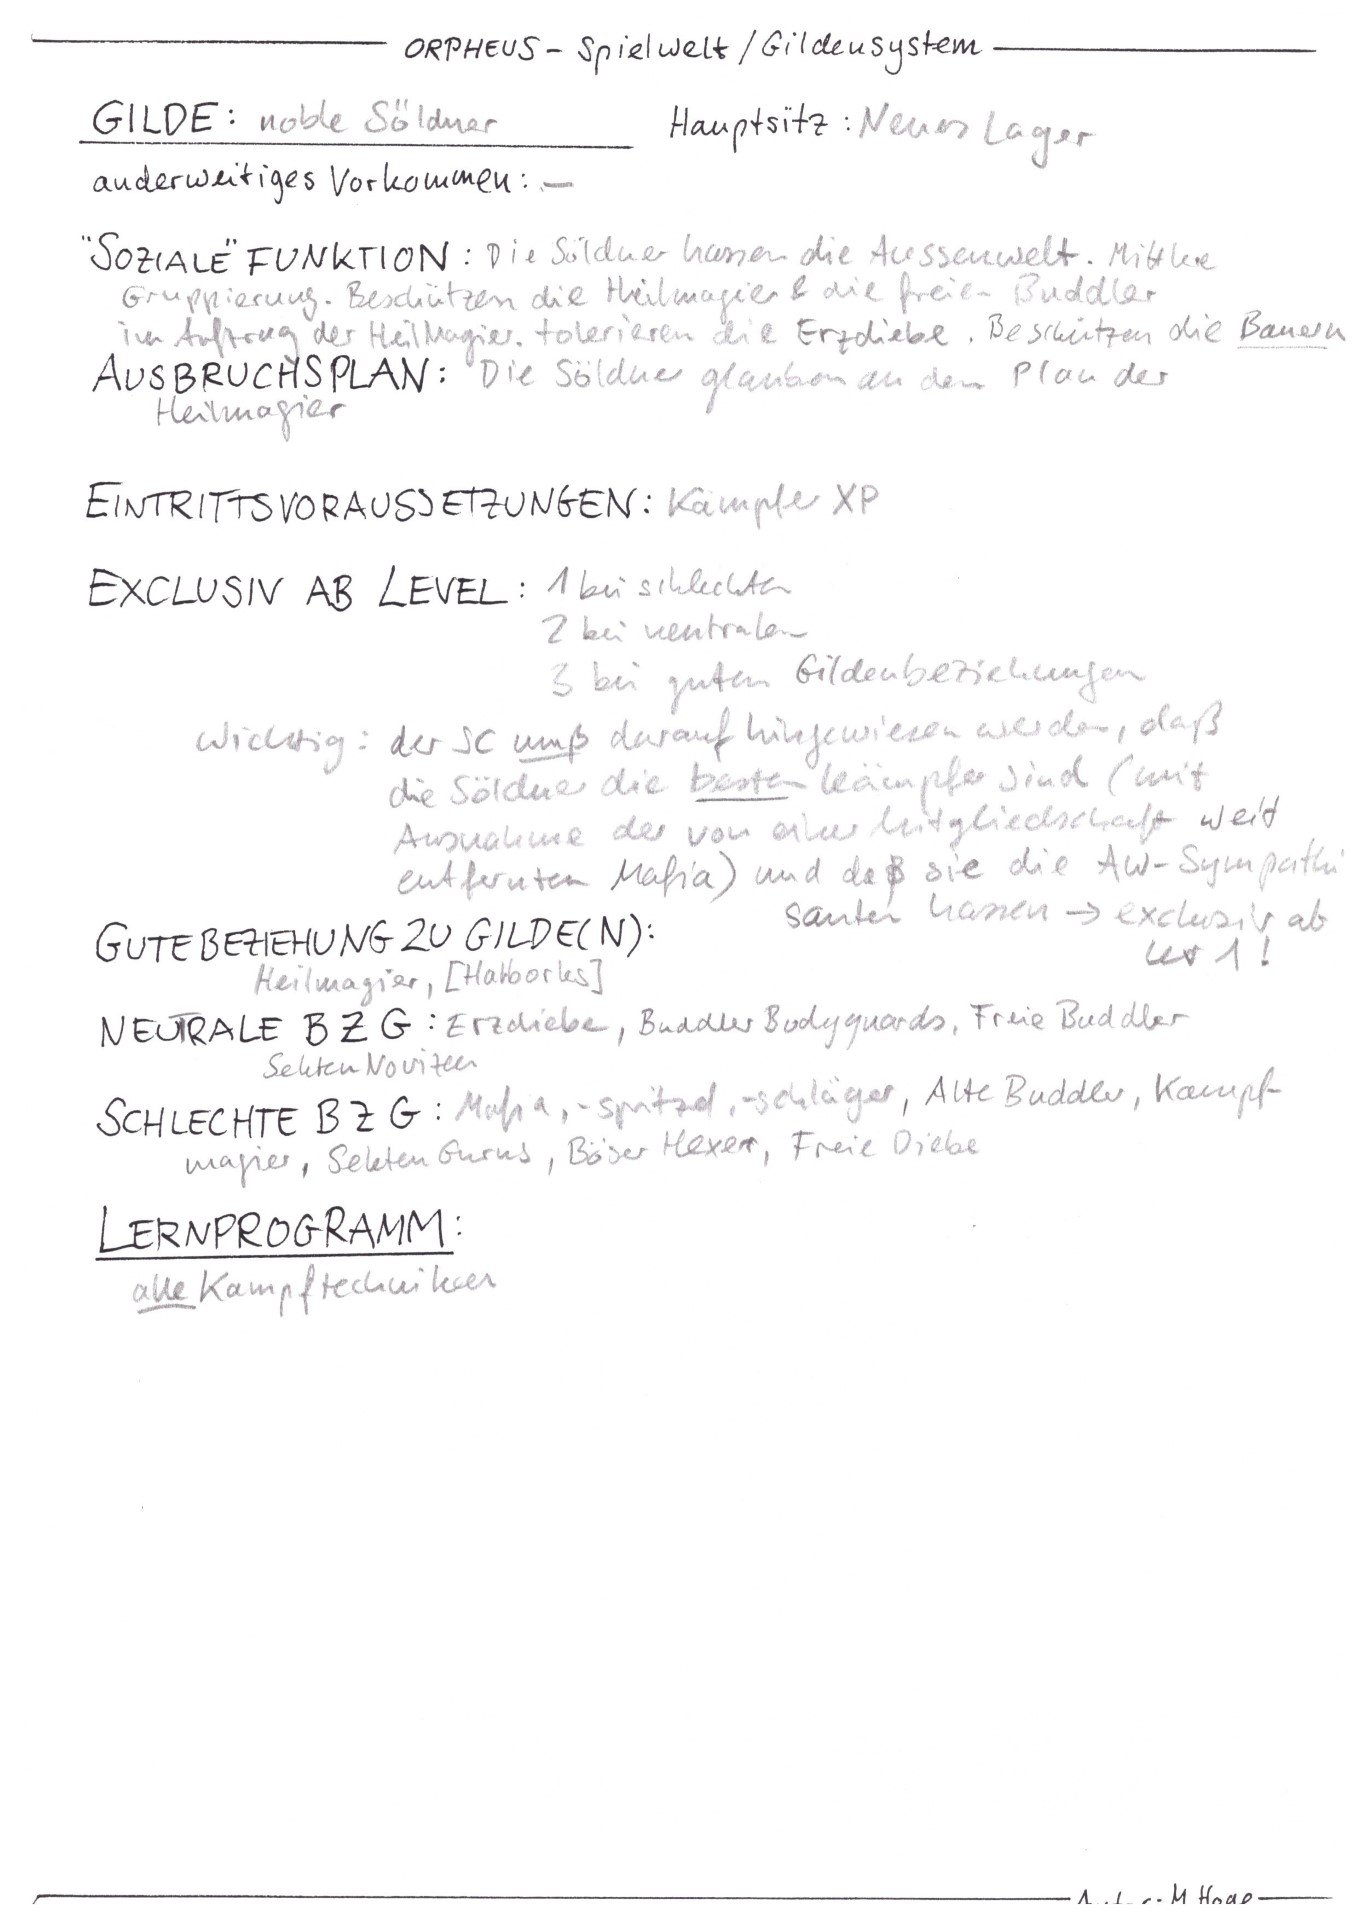 ORPHEUS - Spielwelt / Gildensystem
GILDE: noble Söldner Hauptsitz: Neues Lager
anderweitiges Vorkommen: —
"SOZIALE" FUNKTION: Die Söldner hassen die Aussenwelt. Mittlere
Gruppierung. Beschützen die Heilmagier & die freien Buddler
im Auftrag der Heilmagier. tolerieren die Erzdiebe. Beschützen die Bauern
AUSBRUCHSPLAN: Die Söldner glauben an den Plan der
Heilmagier
EINTRITTSVORAUSSETZUNGEN: Kämpfer XP
EXCLUSIV AB LEVEL: 1 bei schlechten
2 bei neutralen
3 bei guten Gildenbeziehungen
Wichtig: der SC muß darauf hingewiesen werden, daß
die Söldner die besten Kämpfer sind (mit
Ausnahme der von einer Mitgliedschaft weit
entfernten Mafia) und daß sie die AW-Sympathi
santen hassen → exclusiv ab
Lev 1!
GUTE BEZIEHUNG ZU GILDE(N):
Heilmagier,
NEUTRALE BZG: Erzdiebe, Buddler Bodyguards, Freie Buddler
Sekten Novizen
SCHLECHTE BZG: Mafia, -spitzel, -schläger, Alte Buddler, Kampf-
magier, Sekten Gurus, Böser Hexer, Freie Diebe
LERNPROGRAMM:
alle Kampftechniken